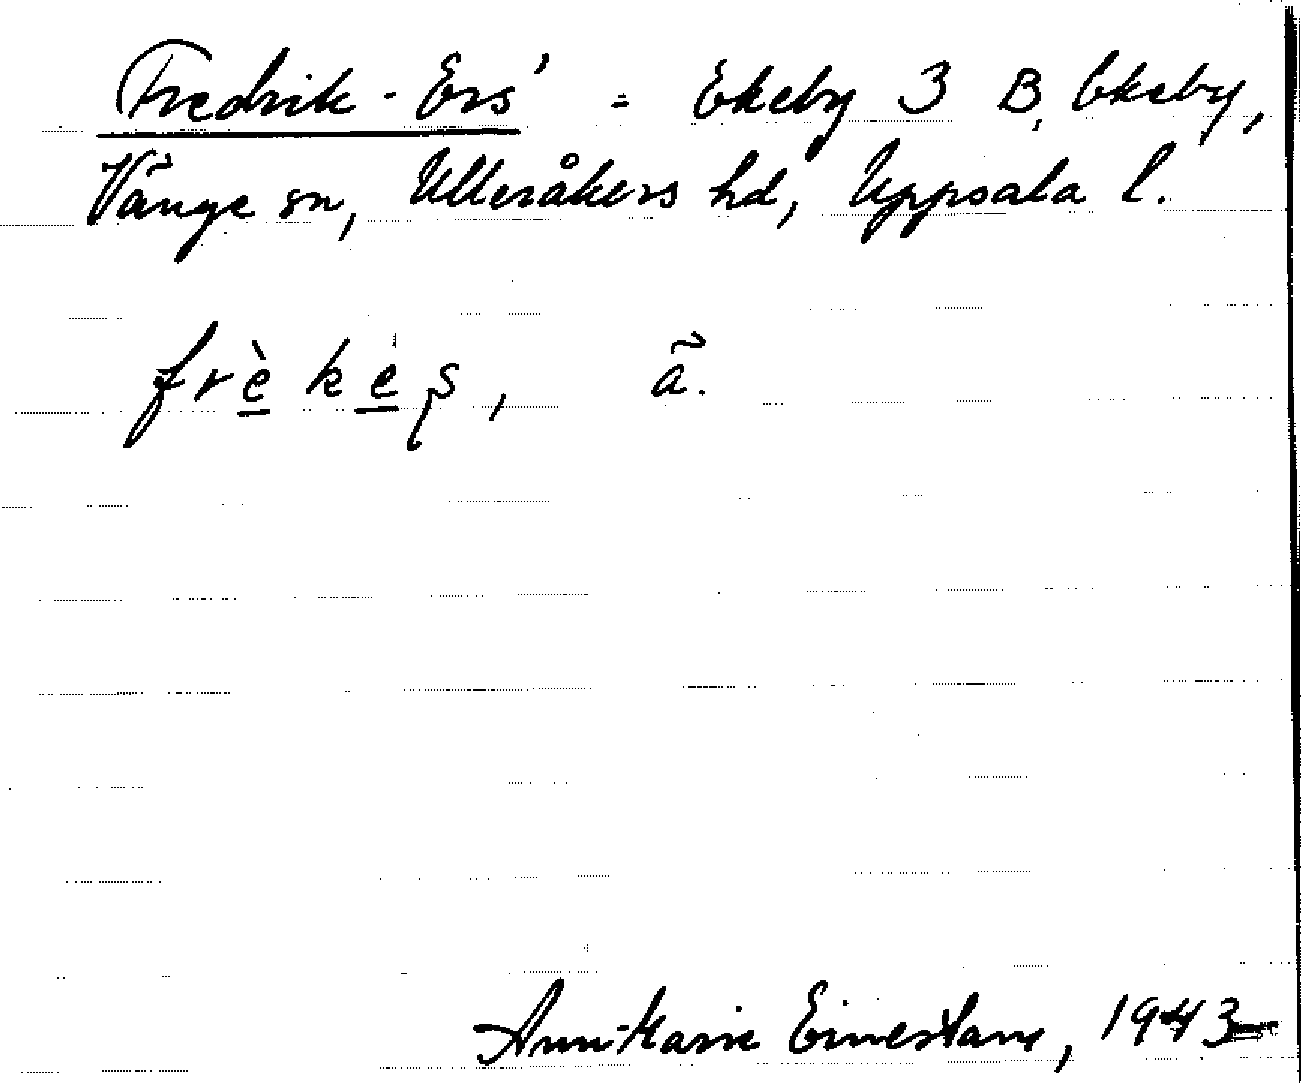 Fredrik-Ers' = Ekeby 3 B, Ekeby,
Vänge sn, Ulleråkers hd, Uppsala l.
frè̲ke̲ş, ã.
Ann-Marie 1943